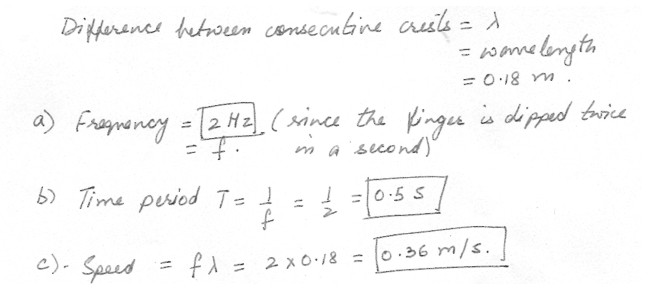 Difference between consecutive crests = λ
= wavelength
= 0.18 m.
a) Frequency = 2 Hz. (since the finger is dipped twice
= f. in a second)
b) Time period T = 1/f = 1/2 = 0.5 s
c). Speed = fλ = 2 x 0.18 = 0.36 m/s.